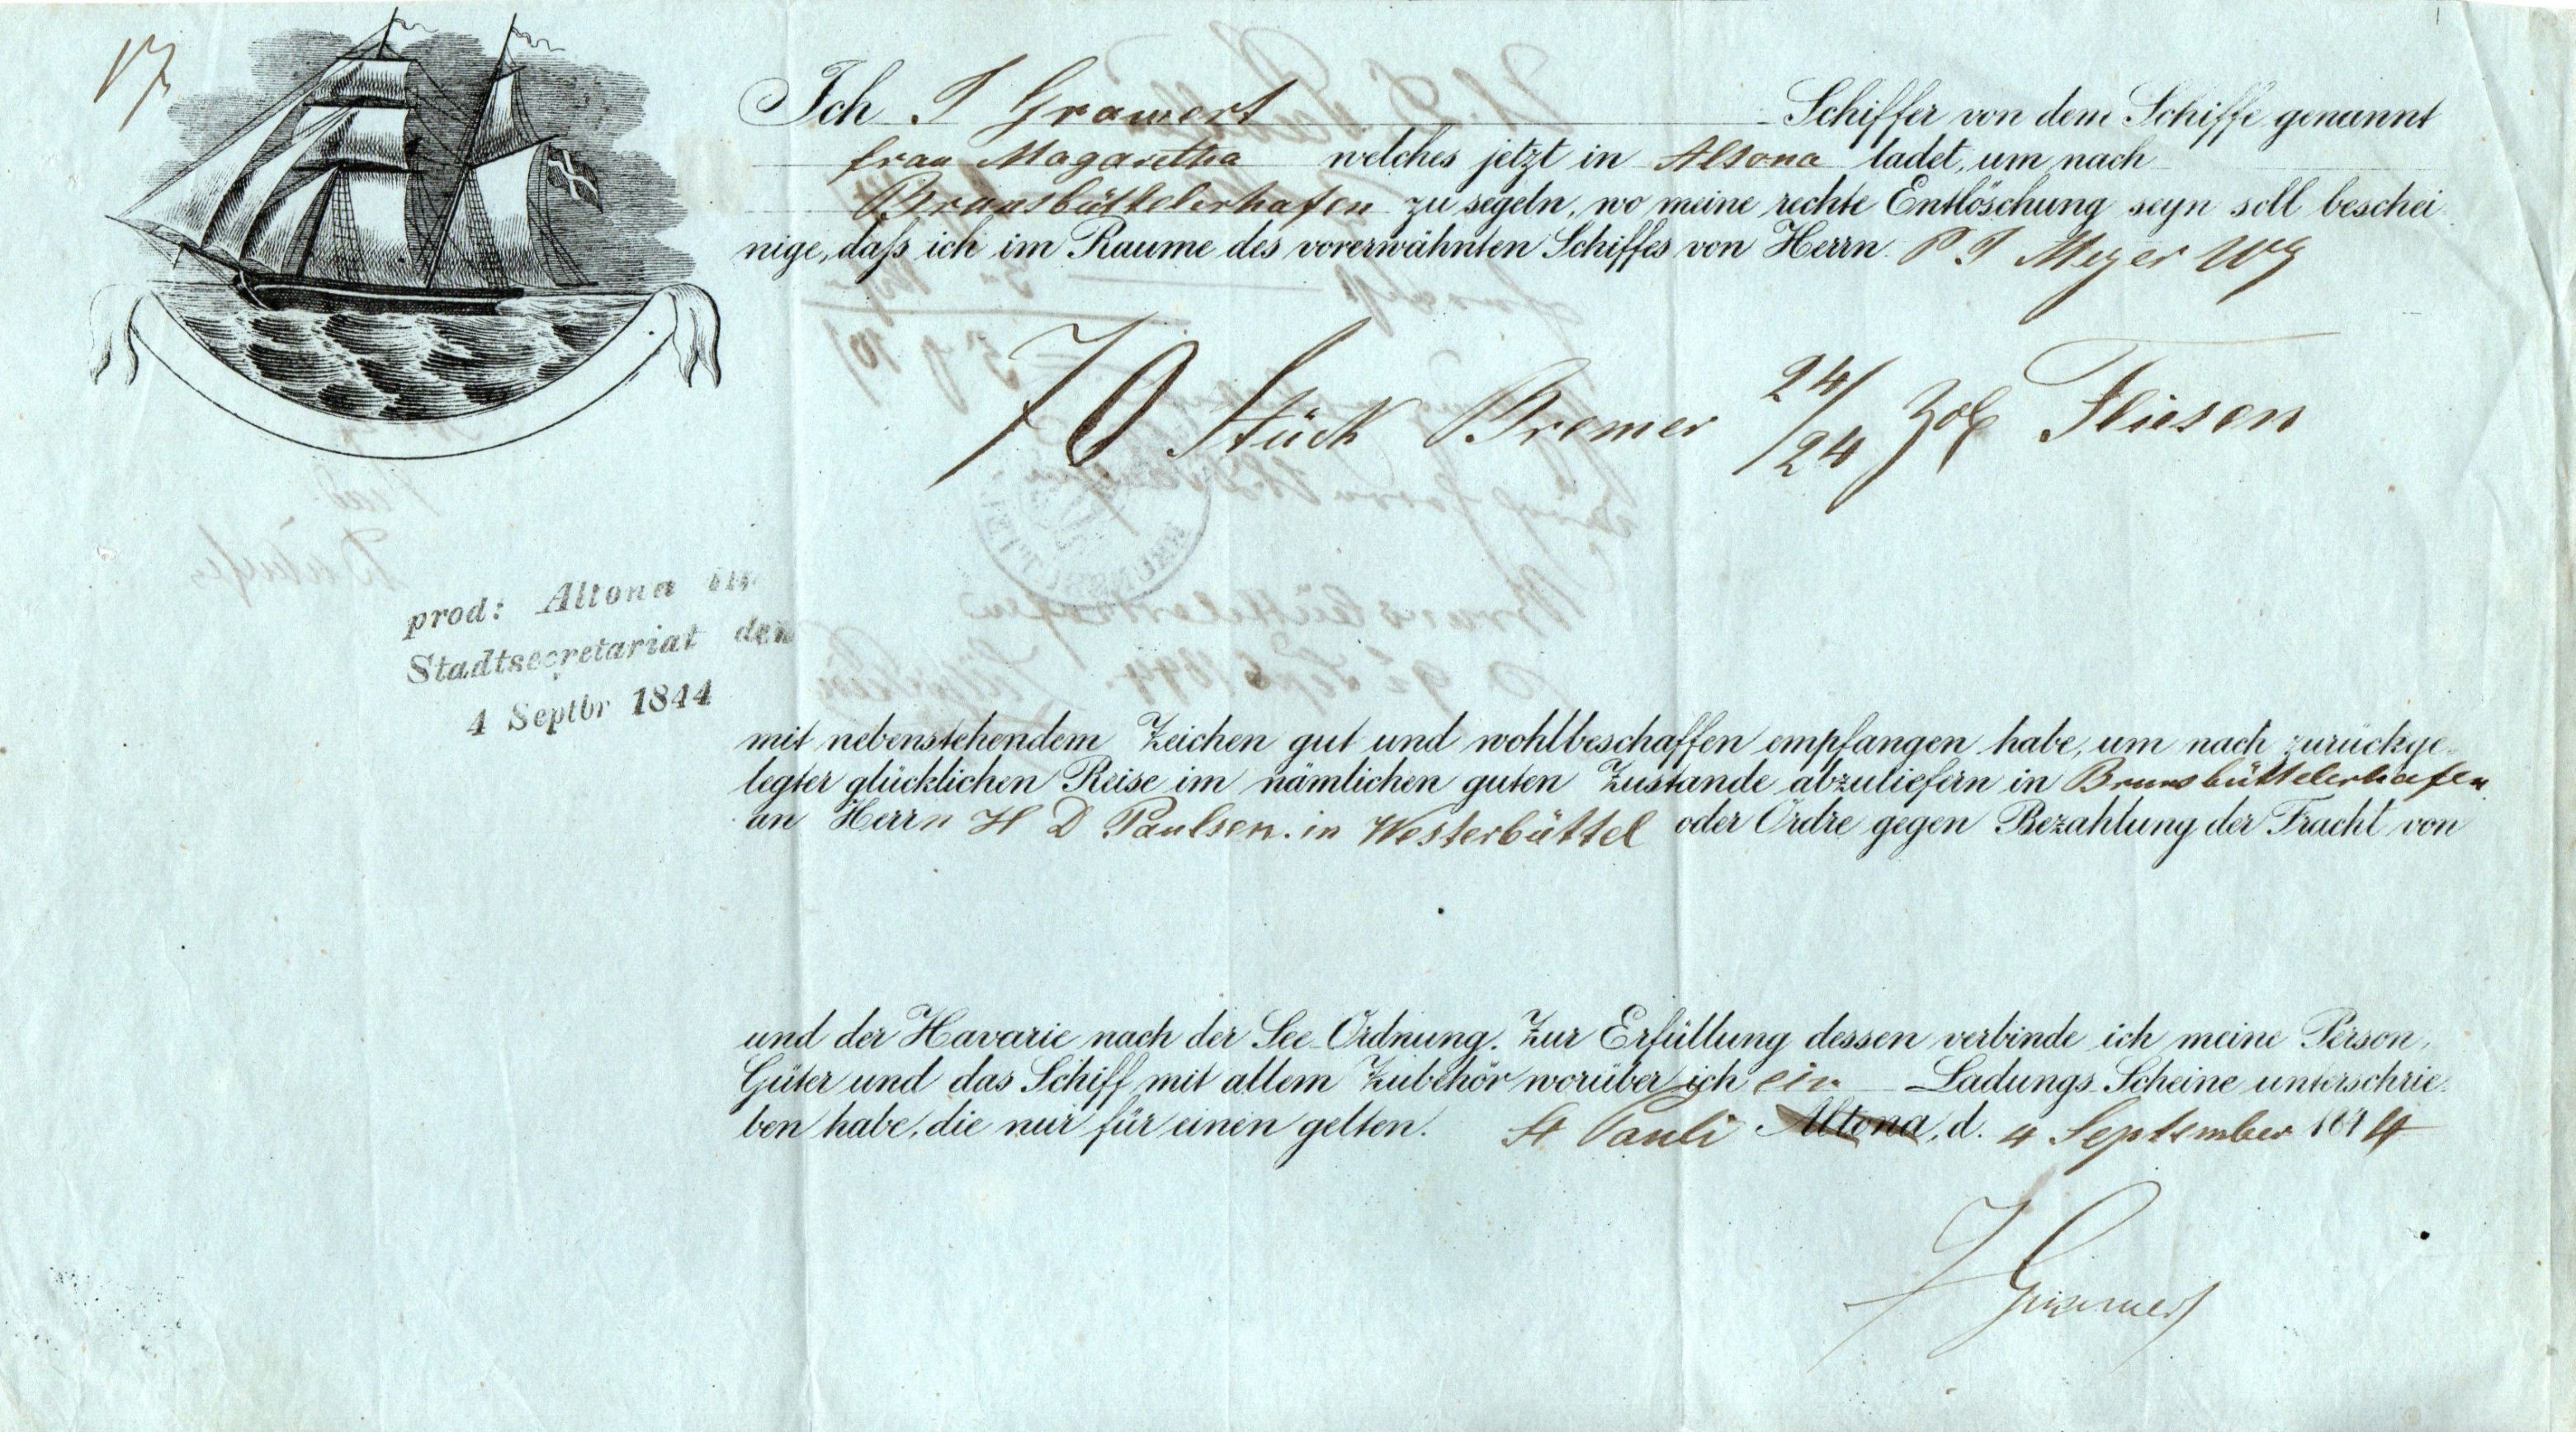 17
Ich J Grawert Schiffer von dem Schiffe genannt
frau Magaretha welches jetzt in Altona ladet, um nach
Brunsbüttelerhafen zu segeln, wo meine rechte Entlöschung seyn soll beschei-
nige, daſs ich im Raume des vorerwähnten Schiffes von Herrn P J Meyer Wg
70 Stück Bremer 24/24 Zoll Fliesen
prod: Altona im
Stadtsecretariat den
4 Septbr 1844
mit nebenstehendem Zeichen gut und wohlbeschaffen empfangen habe, um nach zurückge-
legter glücklichen Reise im nämlichen guten Zustande abzuliefern in Brunsbüttelerhafen
an Herrn H D Paulsen. in Westerbüttel oder Ordre gegen Bezahlung der Fracht von
und der Havarie nach der See-Ordnung. Zur Erfüllung dessen verbinde ich meine Person,
Güter und das Schiff mit allem Zubehör worüber ich ein Ladungs-Scheine unterschrie-
ben habe, die nur für einen gelten. St Pauli Altona, d. 4 September 1844
J Grawert